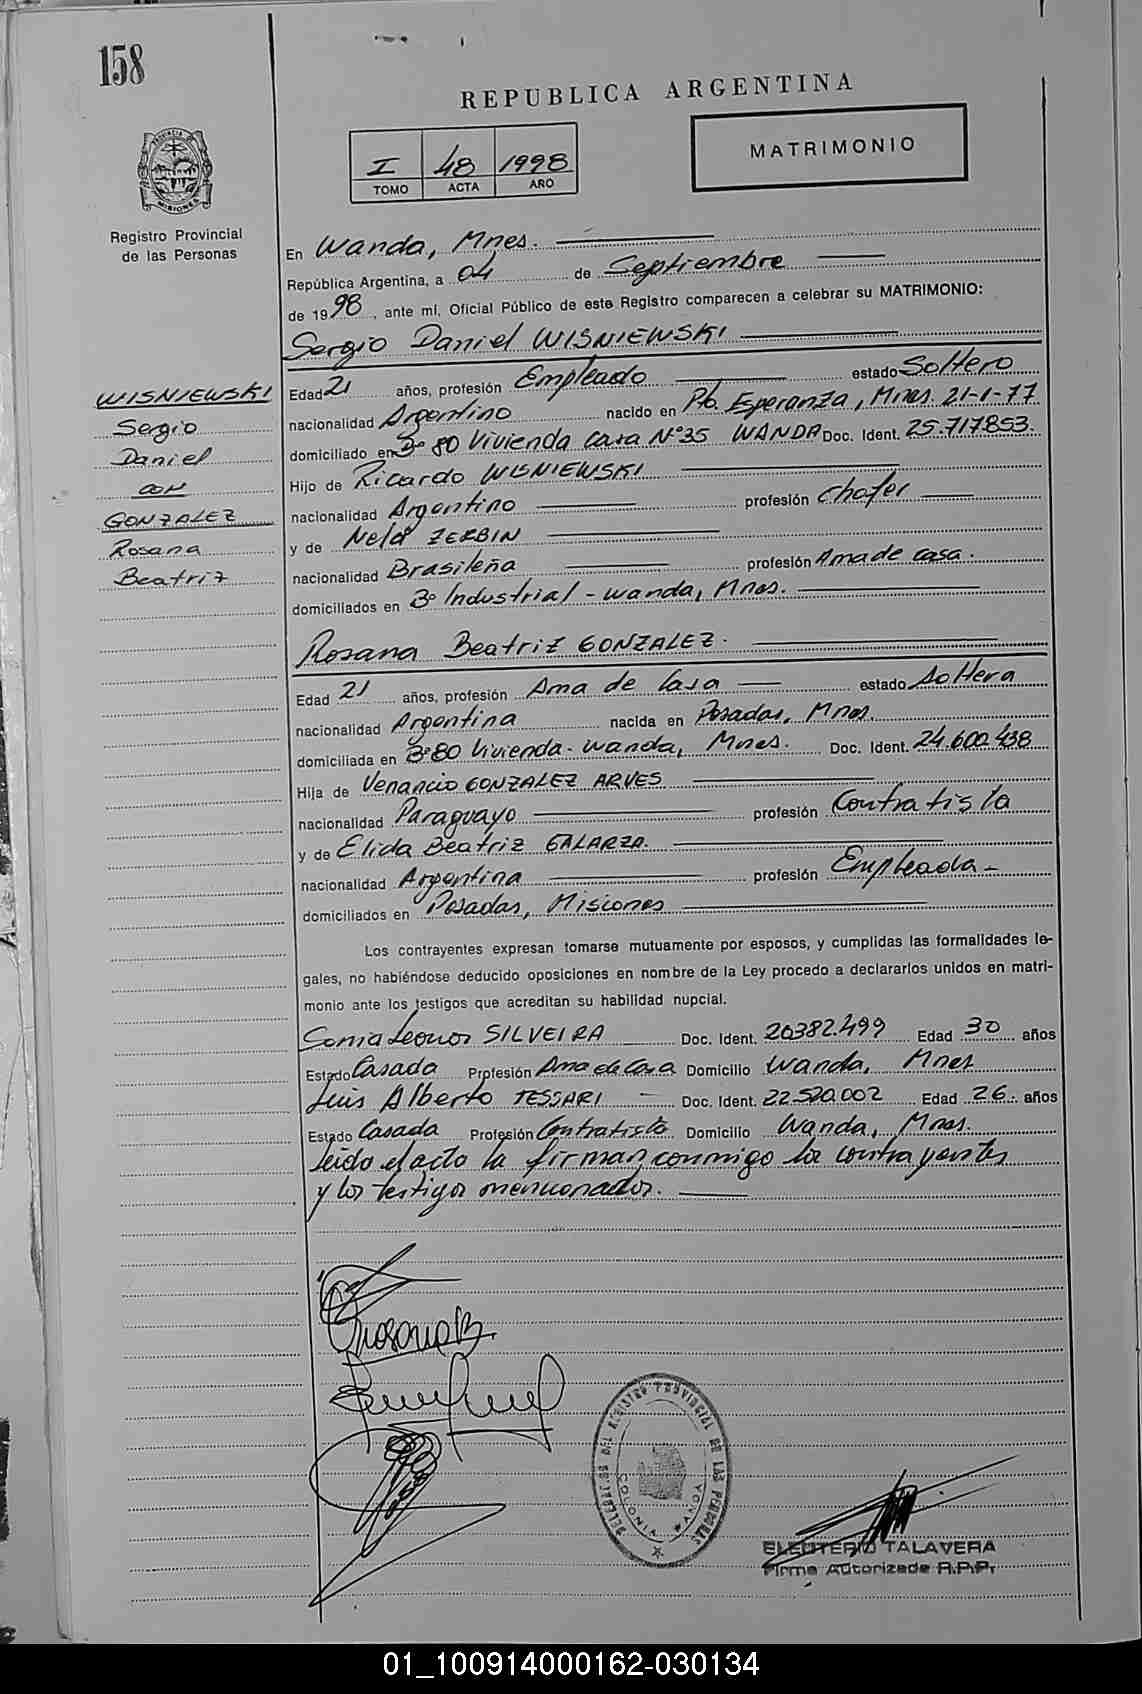 158
REPUBLICA ARGENTINA
I 48 1998
TOMO ACTA AÑO
MATRIMONIO
PROVINCIA DE MISIONES
Registro Provincial
de las Personas
En Wanda, Mnes.
República Argentina, a 04 de Septiembre
de 1998, ante mí, Oficial Público de este Registro comparecen a celebrar su MATRIMONIO:
Sergio Daniel WISNIEWSKI
Edad 21 años, profesión Empleado estado Soltero
nacionalidad Argentino nacido en Pto. Esperanza, Mnes. 21-1-77
domiciliado en Bº 80 Vivienda casa Nº 35 WANDA Doc. Ident. 25.717.853.
Hijo de Ricardo WISNIEWSKI
nacionalidad Argentino profesión Chofer
y de Nelda ZERBIN
nacionalidad Brasileña profesión Ama de casa.
domiciliados en Bº Industrial - Wanda, Mnes.
WISNIEWSKI
Sergio
Daniel
con
GONZALEZ
Rosana
Beatriz
Rosana Beatriz GONZALEZ.
Edad 21 años, profesión Ama de Casa estado Soltera
nacionalidad Argentina nacida en Posadas, Mnes.
domiciliada en Bº 80 Vivienda - Wanda, Mnes. Doc. Ident. 24.600.438
Hija de Venancio GONZALEZ ARVES
nacionalidad Paraguayo profesión Contratista
y de Elida Beatriz GALARZA.
nacionalidad Argentina profesión Empleada -
domiciliados en Posadas, Misiones
Los contrayentes expresan tomarse mutuamente por esposos, y cumplidas las formalidades le-
gales, no habiéndose deducido oposiciones en nombre de la Ley procedo a declararlos unidos en matri-
monio ante los testigos que acreditan su habilidad nupcial.
Sonia Leonor SILVEIRA Doc. Ident. 20.382.499 Edad 30 años
Estado Casada Profesión Ama de Casa Domicilio Wanda, Mnes
Luis Alberto TESSARI - Doc. Ident. 22.520.002 Edad 26. años
Estado Casada Profesión Contratista Domicilio Wanda, Mnes.
Leido el acto la firman conmigo los contrayentes
y los testigos mencionados.
Rosana B
DEL REGISTRO PROVINCIAL DE LAS PERSONAS
COLONIA WANDA
ELEUTERIO TALAVERA
Firma Autorizada R.P.P.
01_100914000162-030134